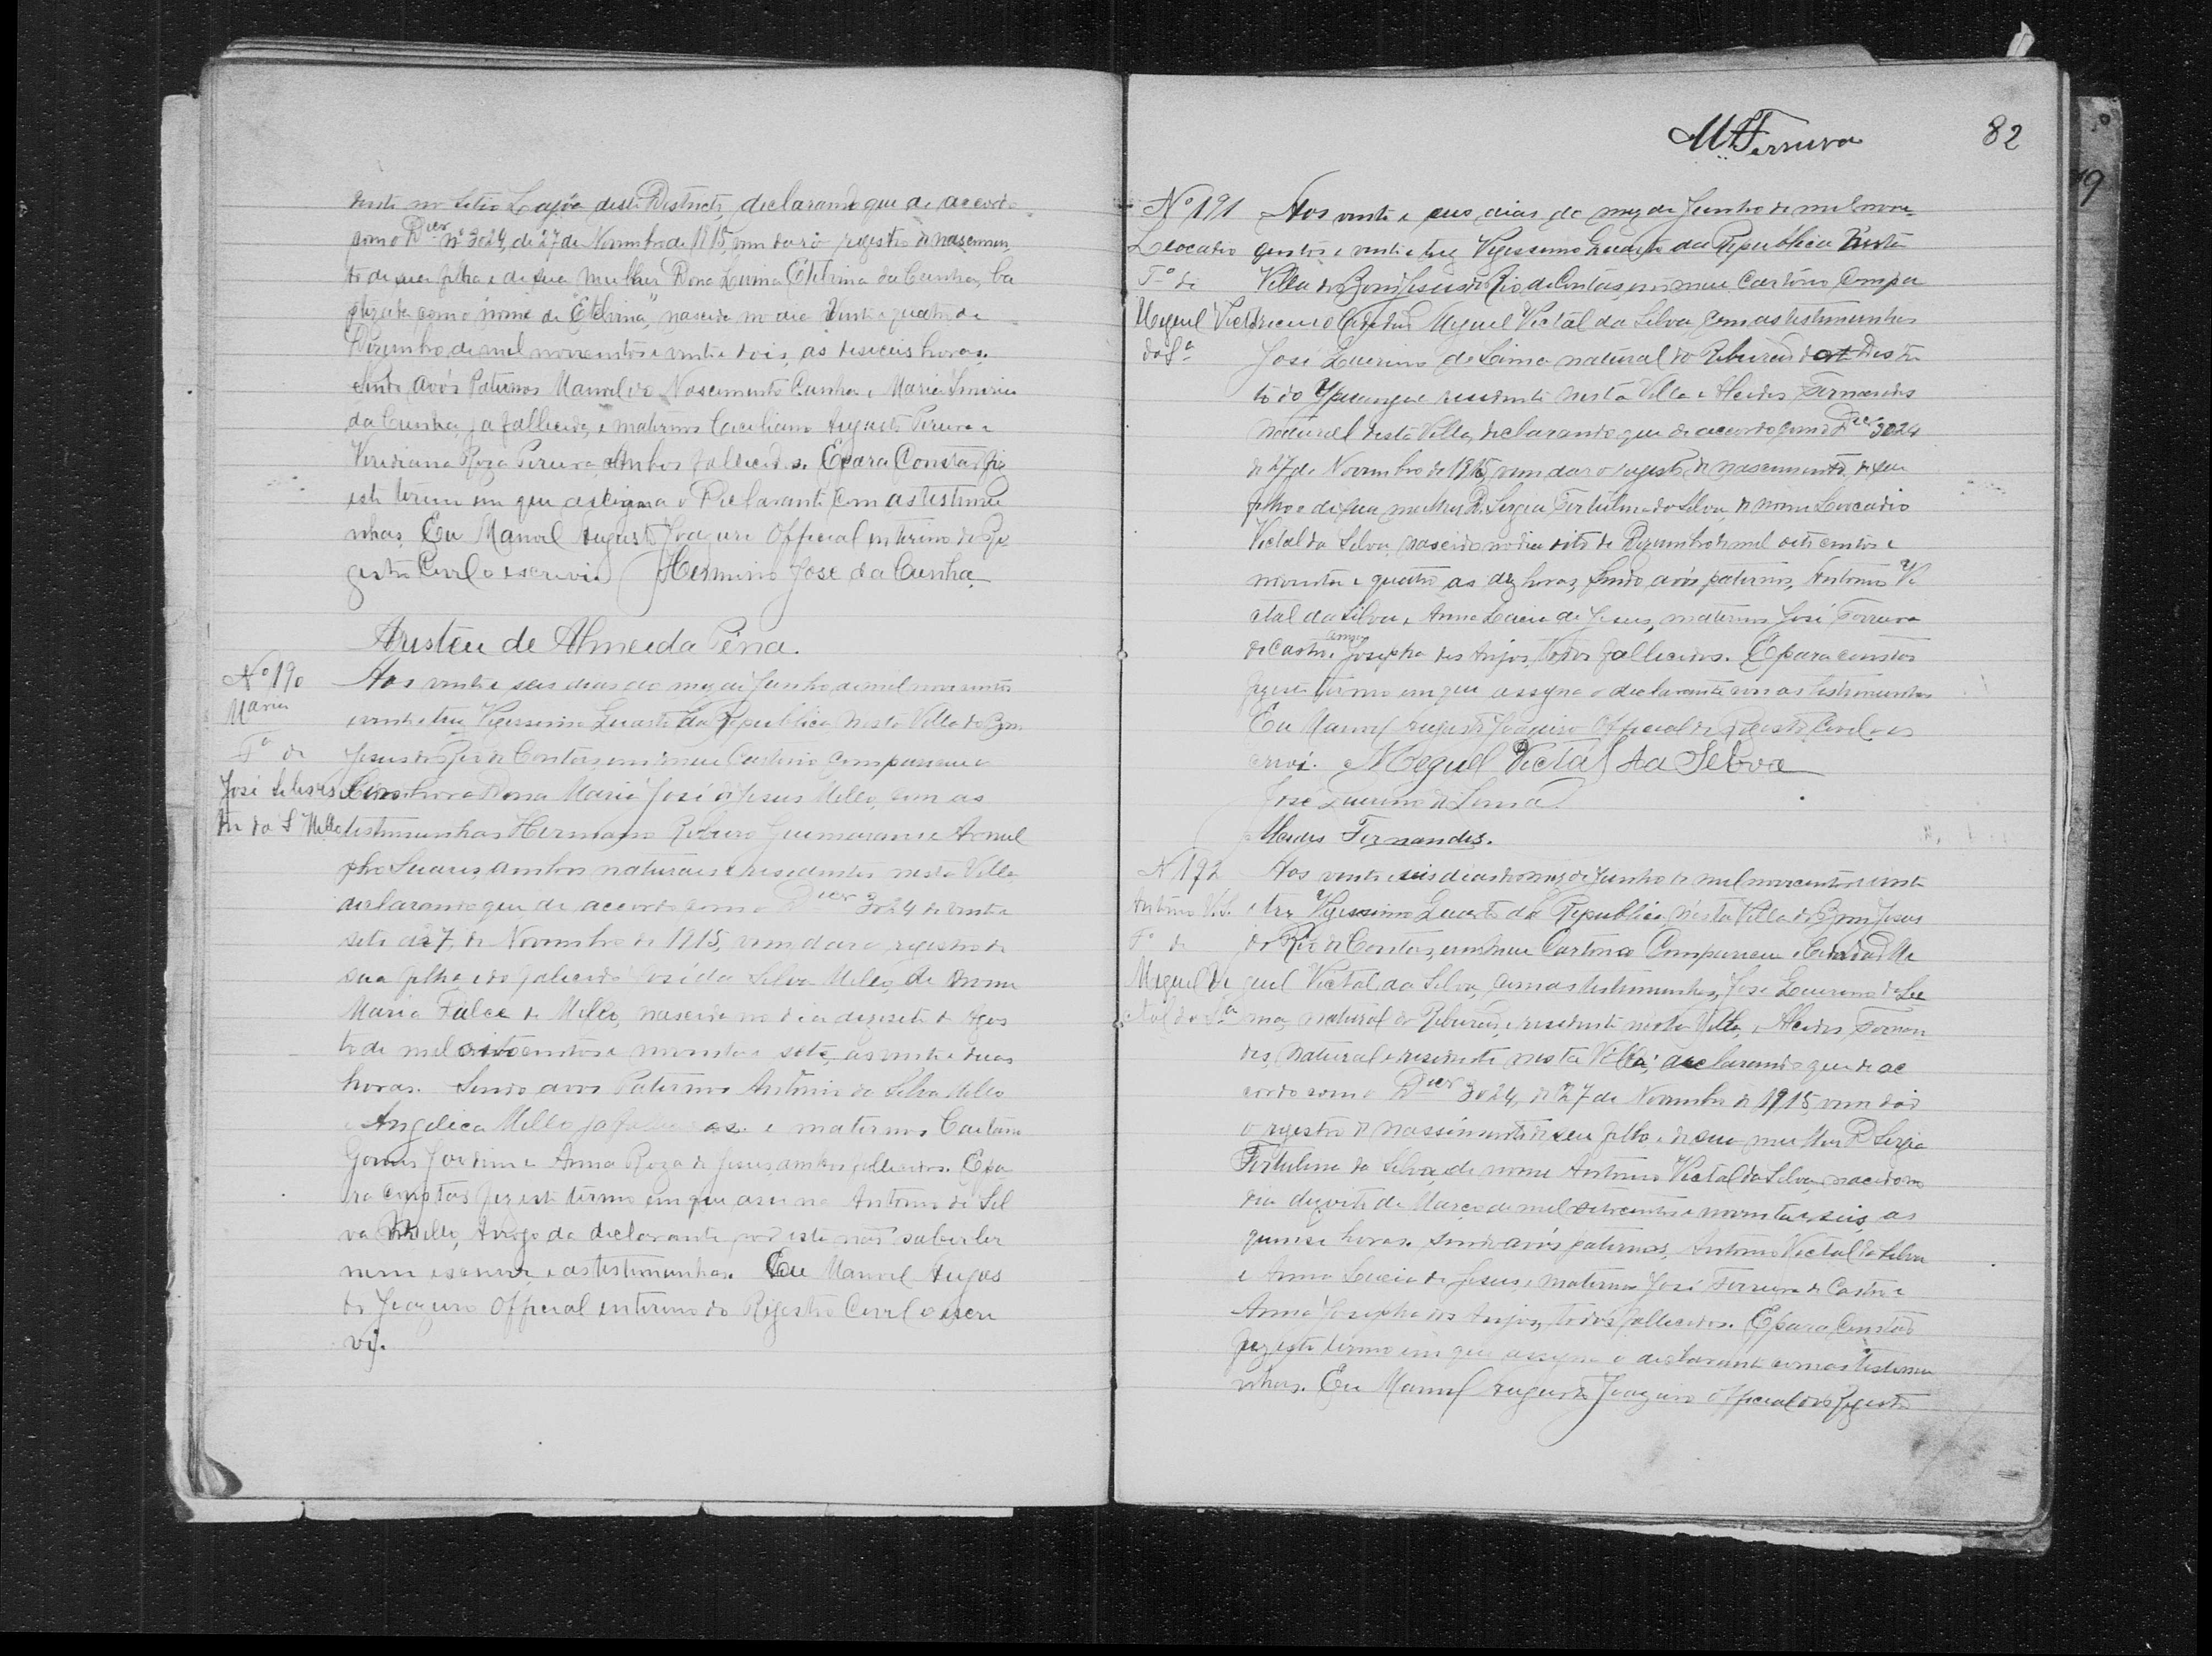 dente no Sitio Lagôa deste Districto, declarando que de accordo
com o Decr nº 3024, de 27 de Novembro de 1915, vem dar o registro de nascimen
to de sua filha e de sua mulher Dona Etelvina da Cunha, ba
ptizada com o nome de "Etelvina", nascida no dia vinte e quatro de
Dezembro de mil novecentos e vinte e dois, as deseceis horas.
Sendo avós Paternos Manoel do Nascimento Cunha e Maria
da Cunha, já fallecida, e maternos Ceciliano Augusto Pereira e
Veridiana Roza Pereira, Ambos fallecidos. E para Constar fiz
este termo em que assigna o Declarante com as testemu
nhas. Eu Manoel Augusto Official interino do Re
gistro Civil o escrevi. Herminio José da Cunha
Aristeu de Almeida Pena.
Nº 190
Maria
Fª de
José
da S Mello
Aos vinte e seis dias do mez de Junho de mil novecentos
e vinte e trez, Vigessimo Quarto da Republica, nesta Villa do Bom
Jesus do Rio de Contas, em meu Cartorio compareceu a
Senhora Dona Maria José de Jesus Mello, com as
testemunhas Hermano Ribeiro Guimarães e
Soares, ambos naturais e residentes nesta Villa,
declarando que de accordo com o Decr 3024 de vinte e
sete de 27 de Novembro de 1915, vem dar o registro de
sua filha e do falecido José da Silva Mello, de nome
Maria de Mello, nascida no dia dezesete de Agos
to de mil oitocentos e noventa e sete, as vinte e duas
horas. Sendo avos Paternos Antonio da Silva Mello
e Angelica Mello já e maternos Caetano
Gomes Jardim e Anna Roza de Jesus, ambos fallecidos. E pa
ra constar fiz este termo em que assina Antonio da Sil
va Mello, a rogo da declarante por esta não saber ler
nem escrever, e as testemunhas. Eu Manoel Augus
to Official interino do Registro Civil o escre
vi.
82
M Ferreira
Nº 191
Leocadio
Fº de
Miguel Victal
da Sª
Aos vinte e seis dias do mez de Junho de mil nove
centos e vinte e trez Vigessimo Quarto da Republica n'esta
Villa do Bom Jesus do Rio de Contas, em meu Cartório Compa
receu o Cidadão Miguel Victal da Silva com as testemunhas
José Quirino de Lima natural do Riberão do Distric
to do residente nesta Villa e Alcides Fernandes
natural desta Villa, declarando que de accordo com o Decr 3024
de 27 de Novembro de 1915, vem dar o registro de nascimento de seu
filho e de sua mulher D. Sergia Tertulina da Silva, de nome Leocadio
Victal da Silva, nascido no dia oito de Dezembro de mil oitocentos e
noventa e quatro as dez horas, Sendo avós paternos, Antonio Vi
ctal da Silva e Anna Lucia de Jesus, maternos José Ferreira
de Castro e Anna Josepha dos Anjos, todos fallecidos. E para constar
fiz este termo em que assigna o declarante com as testemunhas
Eu Manoel Augusto Official do Registro Civil o es
crevi. Miguel Victal da Selva
José Quirino de Lima
Alcides Fernandes.
N 192
Antonio Vict
Fº de
Miguel Vi
ctal da Sª
Aos vinte e seis dias do mez de Junho de mil novecentos e vinte
e trez Vigessimo Quarto da Republica, n'esta Villa do Bom Jesus
do Rio de Contas, em meu Cartorio Compareceu o Cidadão Mi
guel Victal da Silva, com as testemunhas, José Quirino de Li
ma, natural do Riberão, e residente nesta Villa, e Alcides Fernan
des, natural e residente nesta Villa, declarando que de ac
cordo com o Decr 3024, de 27 de Novembro de 1915 vem dar
o registro de nassimento de seu filho e de sua mulher D Sergia
Tertulina da Silva, de nome Antonio Victal da Silva, nacido no
dia dezoito de Março de mil oitocentos e noventa e seis as
quinse horas. Sendo avós paternos, Antonio Victal da Silva
e Anna Lucia de Jesus, e maternos José Ferreira de Castro e
Anna Josepha dos Anjos, todos fallecidos. E para Constar
fiz este termo em que assigna o declarante com as testemu
nhas. Eu Manoel Augusto Official do Registro